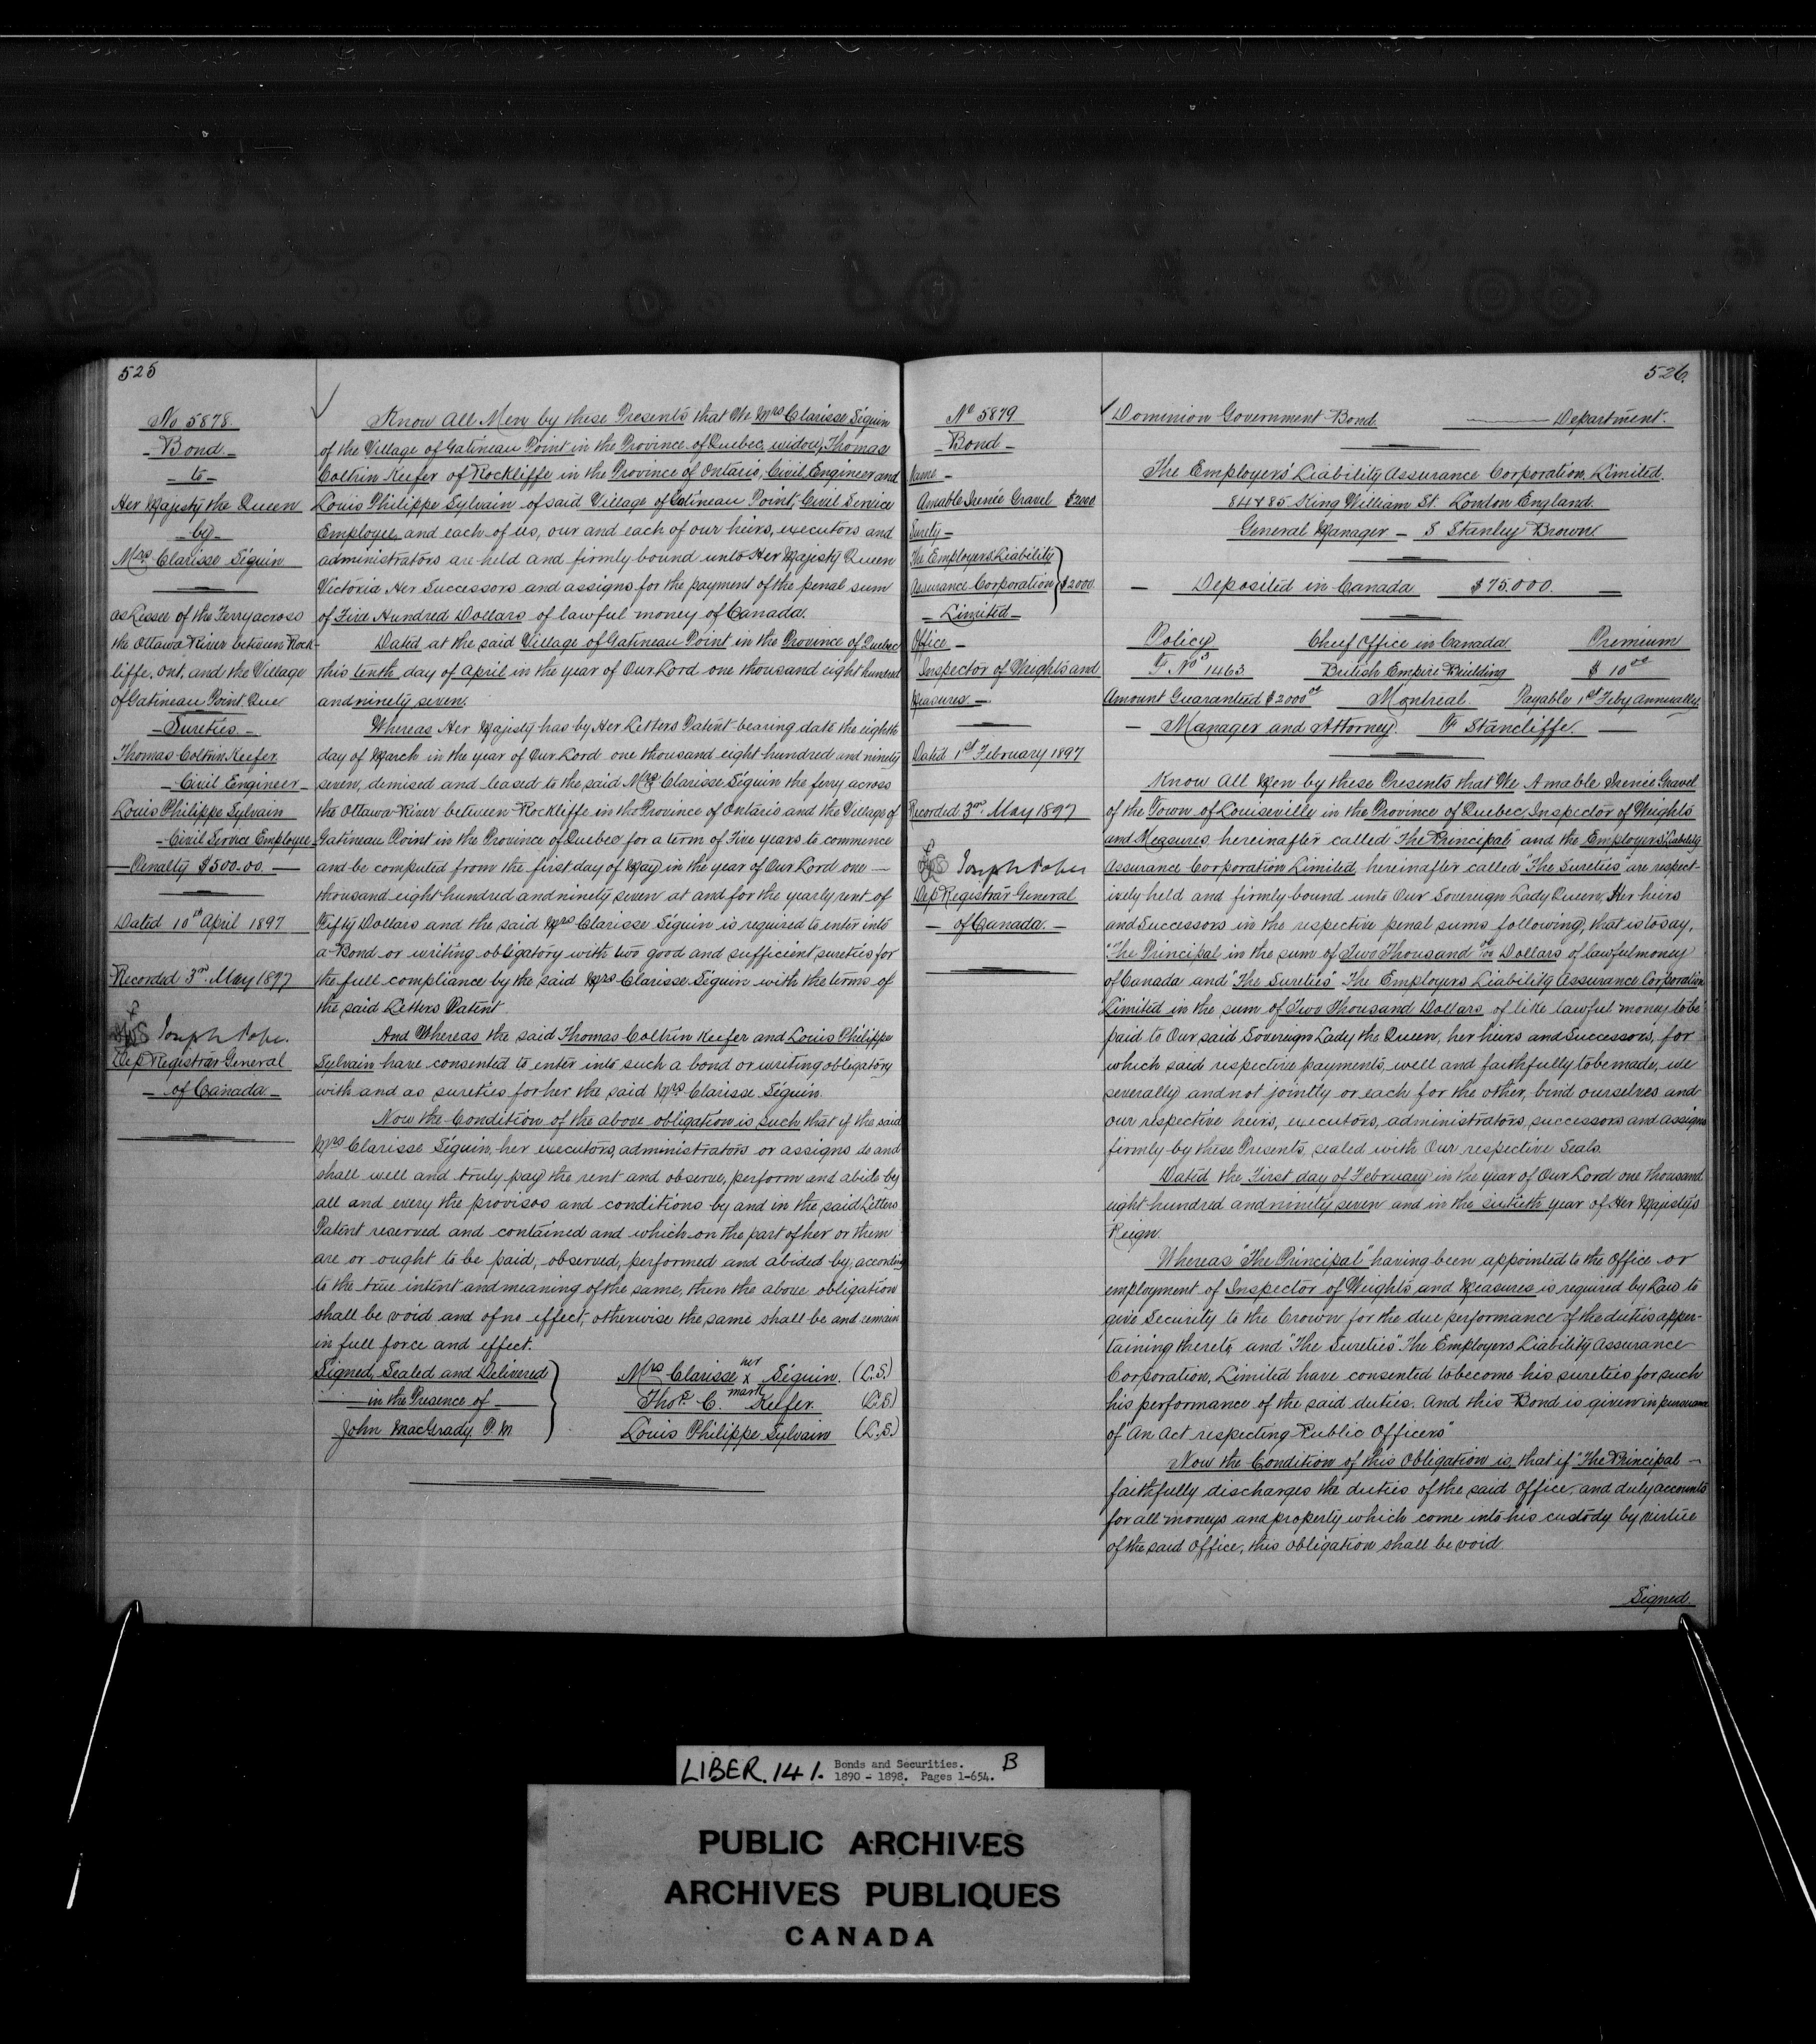 525
No 5878.
- Bond -
- to -
Her Majesty the Queen
- by -
Mrs Clarisse Séguin
as Lessee of the Ferry across
the Ottawa River between Rock-
liffe, Ont. and the Village
of Gatineau Point Que
- Sureties -
Thomas Coltrin Keefer
- Civil Engineer -
Louis Philippe Sylvain
- Civil Service Employee
- Penalty $500.00. -
Dated 10th April 1897
Recorded 3rd. May 1897
Joseph Pope.
Dep Registrar General
- of Canada -
Know All Men by these Presents that We Mrs Clarisse Séguin
of the Village of Gatineau Point in the Province of Quebec, widow, Thomas
Coltrin Keefer of Rockliffe in the Province of Ontario, Civil Engineer and
Louis Philippe Sylvain of said Village of Gatineau Point, Civil Service
Employee and each of us, our and each of our heirs, executors and
administrators are held and firmly bound unto Her Majesty Queen
Victoria Her Successors and assigns for the payment of the penal sum
of Five Hundred Dollars of lawful money of Canada.
Dated at the said Village of Gatineau Point in the Province of Quebec
this tenth day of April in the year of Our Lord one thousand eight hundred
and ninety seven.
Whereas Her Majesty has by Her Letters Patent bearing date the eighth
day of March in the year of Our Lord one thousand eight hundred and ninety
seven, demised and leased to the said Mrs Clarisse Séguin the ferry across
the Ottawa River between Rockliffe in the Province of Ontario and the Village of
Gatineau Point in the Province of Quebec for a term of Five years to commence
and be computed from the first day of May in the year of Our Lord one -
thousand eight hundred and ninety seven at and for the yearly rent of
Fifty Dollars and the said Mrs Clarisse Séguin is required to enter into
a Bond or writing obligatory with two good and sufficient sureties for
the full compliance by the said Mrs Clarisse Séguin with the terms of
the said Letters Patent.
And Whereas the said Thomas Coltrin Keefer and Louis Philippe
Sylvain have consented to enter into such a bond or writing obligatory
with and as sureties for her the said Mrs Clarisse Séguin.
Now the Condition of the above obligation is such that if the said
Mrs Clarisse Séguin, her executors, administrators or assigns do and
shall well and truly pay the rent and observe, perform and abide by
all and every the provisos and conditions by and in the said Letters
Patent reserved and contained and which on the part of her or them
are or ought to be paid, observed, performed and abided by, according
to the true intent and meaning of the same, then the above obligation
shall be void and of no effect, otherwise the same shall be and remain
in full force and effect.
Signed, Sealed and Delivered
in the Presence of
John MacGrady P.M
Mrs Clarisse her x mark Séguin. (L.S.)
Thos. C. Keefer. (L.S.)
Louis Philippe Sylvain (L.S.)
526.
No 5879
- Bond -
Name -
Amable Irenée Gravel $2000
Surety -
The Employers Liability
Assurance Corporation $2000.
- Limited -
Office -
Inspector of Weights and
Measures. -
Dated 1st February 1897
Recorded 3rd. May 1897
Joseph Pope
Dep Registrar General
- of Canada. -
Dominion Government Bond. Department.
The Employers' Liability Assurance Corporation, Limited.
84 & 85 King William St. London England.
General Manager - S Stanley Brown.
- Deposited in Canada $75.000. -
Policy Chief Office in Canada Premium
F. Nos 1463 British Empire Building $10 00
Amount Guaranteed $2000 00 Montreal Payable 1st Feby Annually
- Manager and Attorney. F Stancliffe. -
Know All Men by these Presents that We Amable Irenée Gravel
of the Town of Louiseville in the Province of Quebec, Inspector of Weights
and Measures hereinafter called "The Principal" and the Employers Liability
Assurance Corporation Limited, hereinafter called "The Sureties" are respect-
ively held and firmly bound unto Our Sovereign Lady Queen, Her heirs
and Successors in the respective penal sums following, that is to say,
"The Principal in the sum of Two Thousand 00/100 Dollars of lawful money
of Canada and "The Sureties" The Employers Liability Assurance Corporation
Limited in the sum of Two Thousand Dollars of like lawful money to be
paid to Our said Sovereign Lady the Queen, her heirs and Successors, for
which said respective payments, well and faithfully to be made, we
severally and not jointly or each for the other, bind ourselves and
our respective heirs, executors, administrators, successors and assigns
firmly by these Presents, sealed with Our respective Seals.
Dated the First day of February in the year of Our Lord one thousand
eight hundred and ninety seven and in the sixtieth year of Her Majesty's
Reign.
Whereas "The Principal" having been appointed to the Office or
employment of Inspector of Weights and Measures is required by Law to
give Security to the Crown for the due performance of the duties apper-
taining thereto and "The Sureties" The Employers Liability Assurance
Corporation, Limited have consented to become his sureties for such
his performance of the said duties. And this Bond is given in pursuance
of "An Act respecting Public Officers"
Now the Condition of this Obligation is, that if "The Principal -
faithfully discharges the duties of the said Office, and duly accounts
for all moneys and property which come into his custody by virtue
of the said Office, this obligation shall be void.
Signed
LIBER. 141. Bonds and Securities. B
1890 - 1898. Pages 1-654.
PUBLIC ARCHIVES
ARCHIVES PUBLIQUES
CANADA